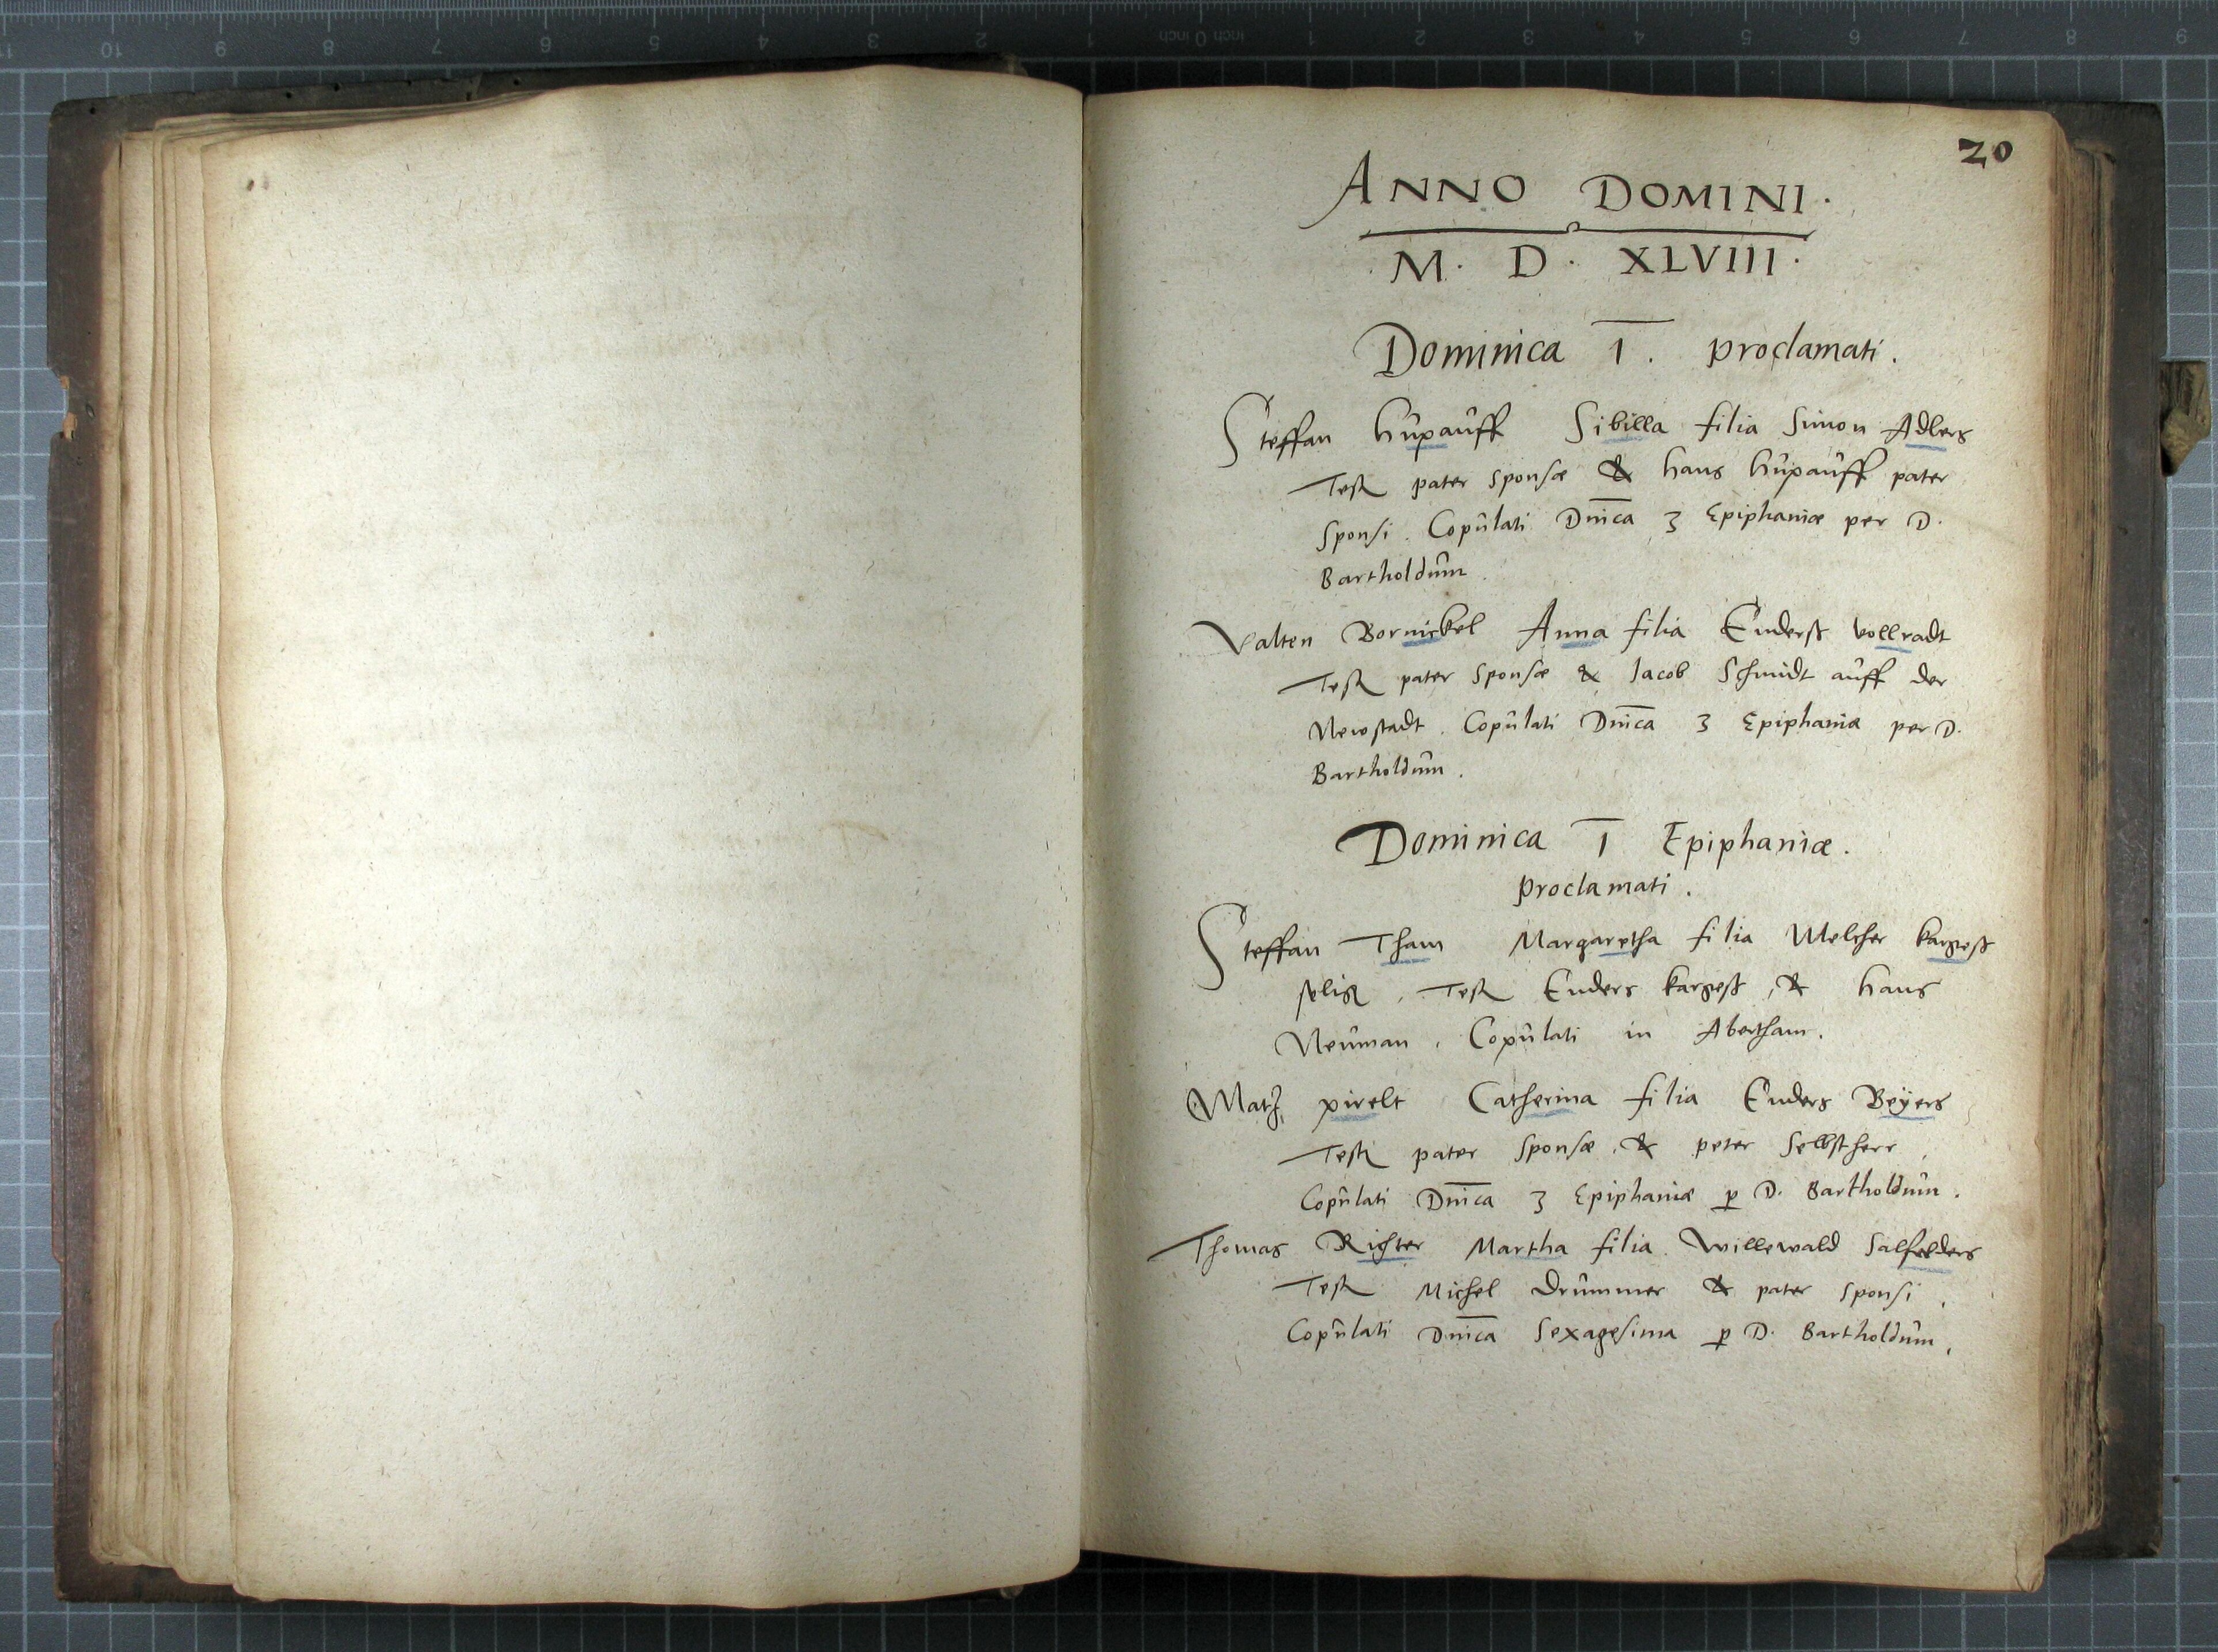 20
ANNO DOMINI.
M. D. XLVIII.
Dominica 1. proclamati.
Steffan Hupauff Sibilla filia Simon Adlers
Test pater sponsæ & Hans Hupauff pater
sponsi. Copulati Dnica 3 Epiphaniæ per D.
Bartholdum.
Valten Bornickel Anna filia Enderß Vollradt
Test pater sponsæ & Jacob Schmidt auff der
Newstadt. Copulati Dnica 3 Epiphaniæ per D.
Bartholdum.
Dominica 1 Epiphaniæ.
proclamati.
Steffan Tham Margaretha filia Melcher
selig. Test Enders & Hans
Neuman. Copulati in Abertham.
Matz pirelt Catherina filia Enders Beÿers
Test pater sponsæ, & peter Selbstherr
Copulati Dnica 3 Epiphaniæ p D. Bartholdum.
Thomas Richter Martha filia Willewald Salfelders
Test Michel Drummer & pater sponsi,
Copulati Dnica Sexagesima p D. Bartholdum.